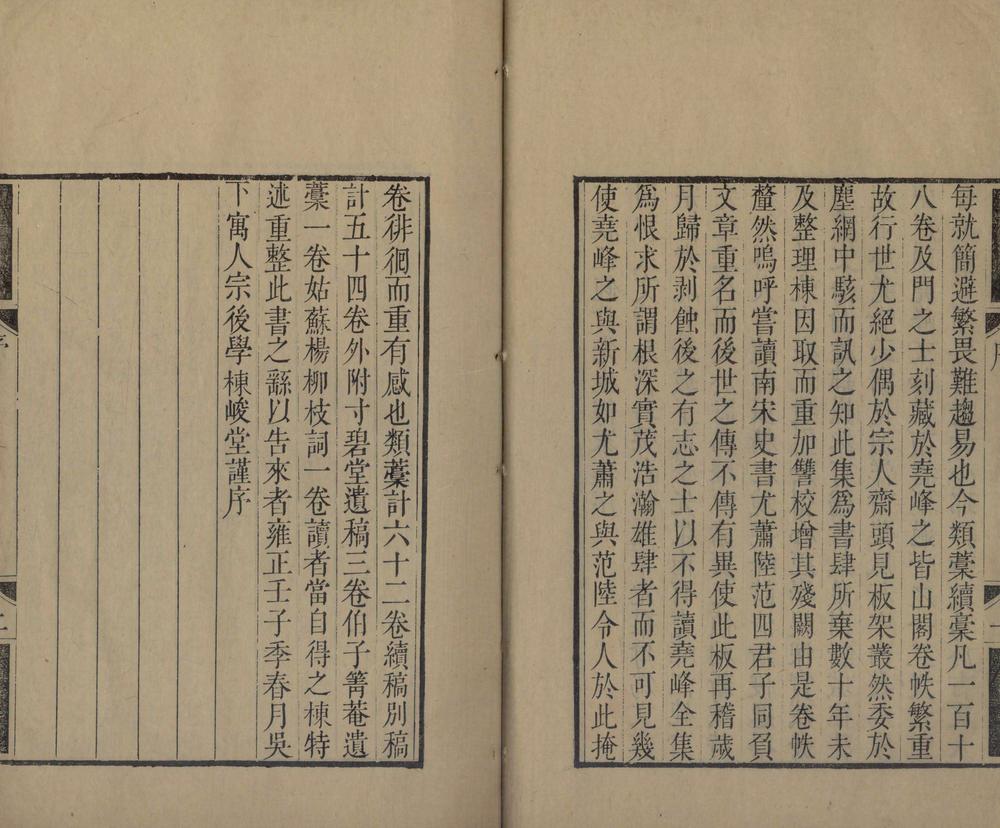 每就簡避繁畏難趨易也今類藁續藁凡一百十
八卷及門之士刻藏於堯峰之皆山閣卷帙繁重
故行世尤絕少偶於宗人齋頭見板架叢然委於
塵網中駭而訊之知此集爲書肆所棄數十年未
及整理棟因取而重加讐校增其殘闕由是卷帙
釐然嗚呼嘗讀南宋史書尤蕭陸范四君子同負
文章重名而後世之傳不傳有異使此板再稽歲
月歸於剥蝕後之有志之士以不得讀堯峰全集
爲恨求所謂根深實茂浩瀚雄肆者而不可見幾
使堯峰之與新城如尤蕭之與范陸令人於此掩
卷徘徊而重有感也類藁計六十二卷續稿別稿
計五十四卷外附寸碧堂遺稿三卷伯子箐菴遺
藁一卷姑蘇楊柳枝詞一卷讀者當自得之棟特
述重整此書之繇以告來者雍正壬子季春月吳
下寓人宗後學棟峻堂謹序
序
二